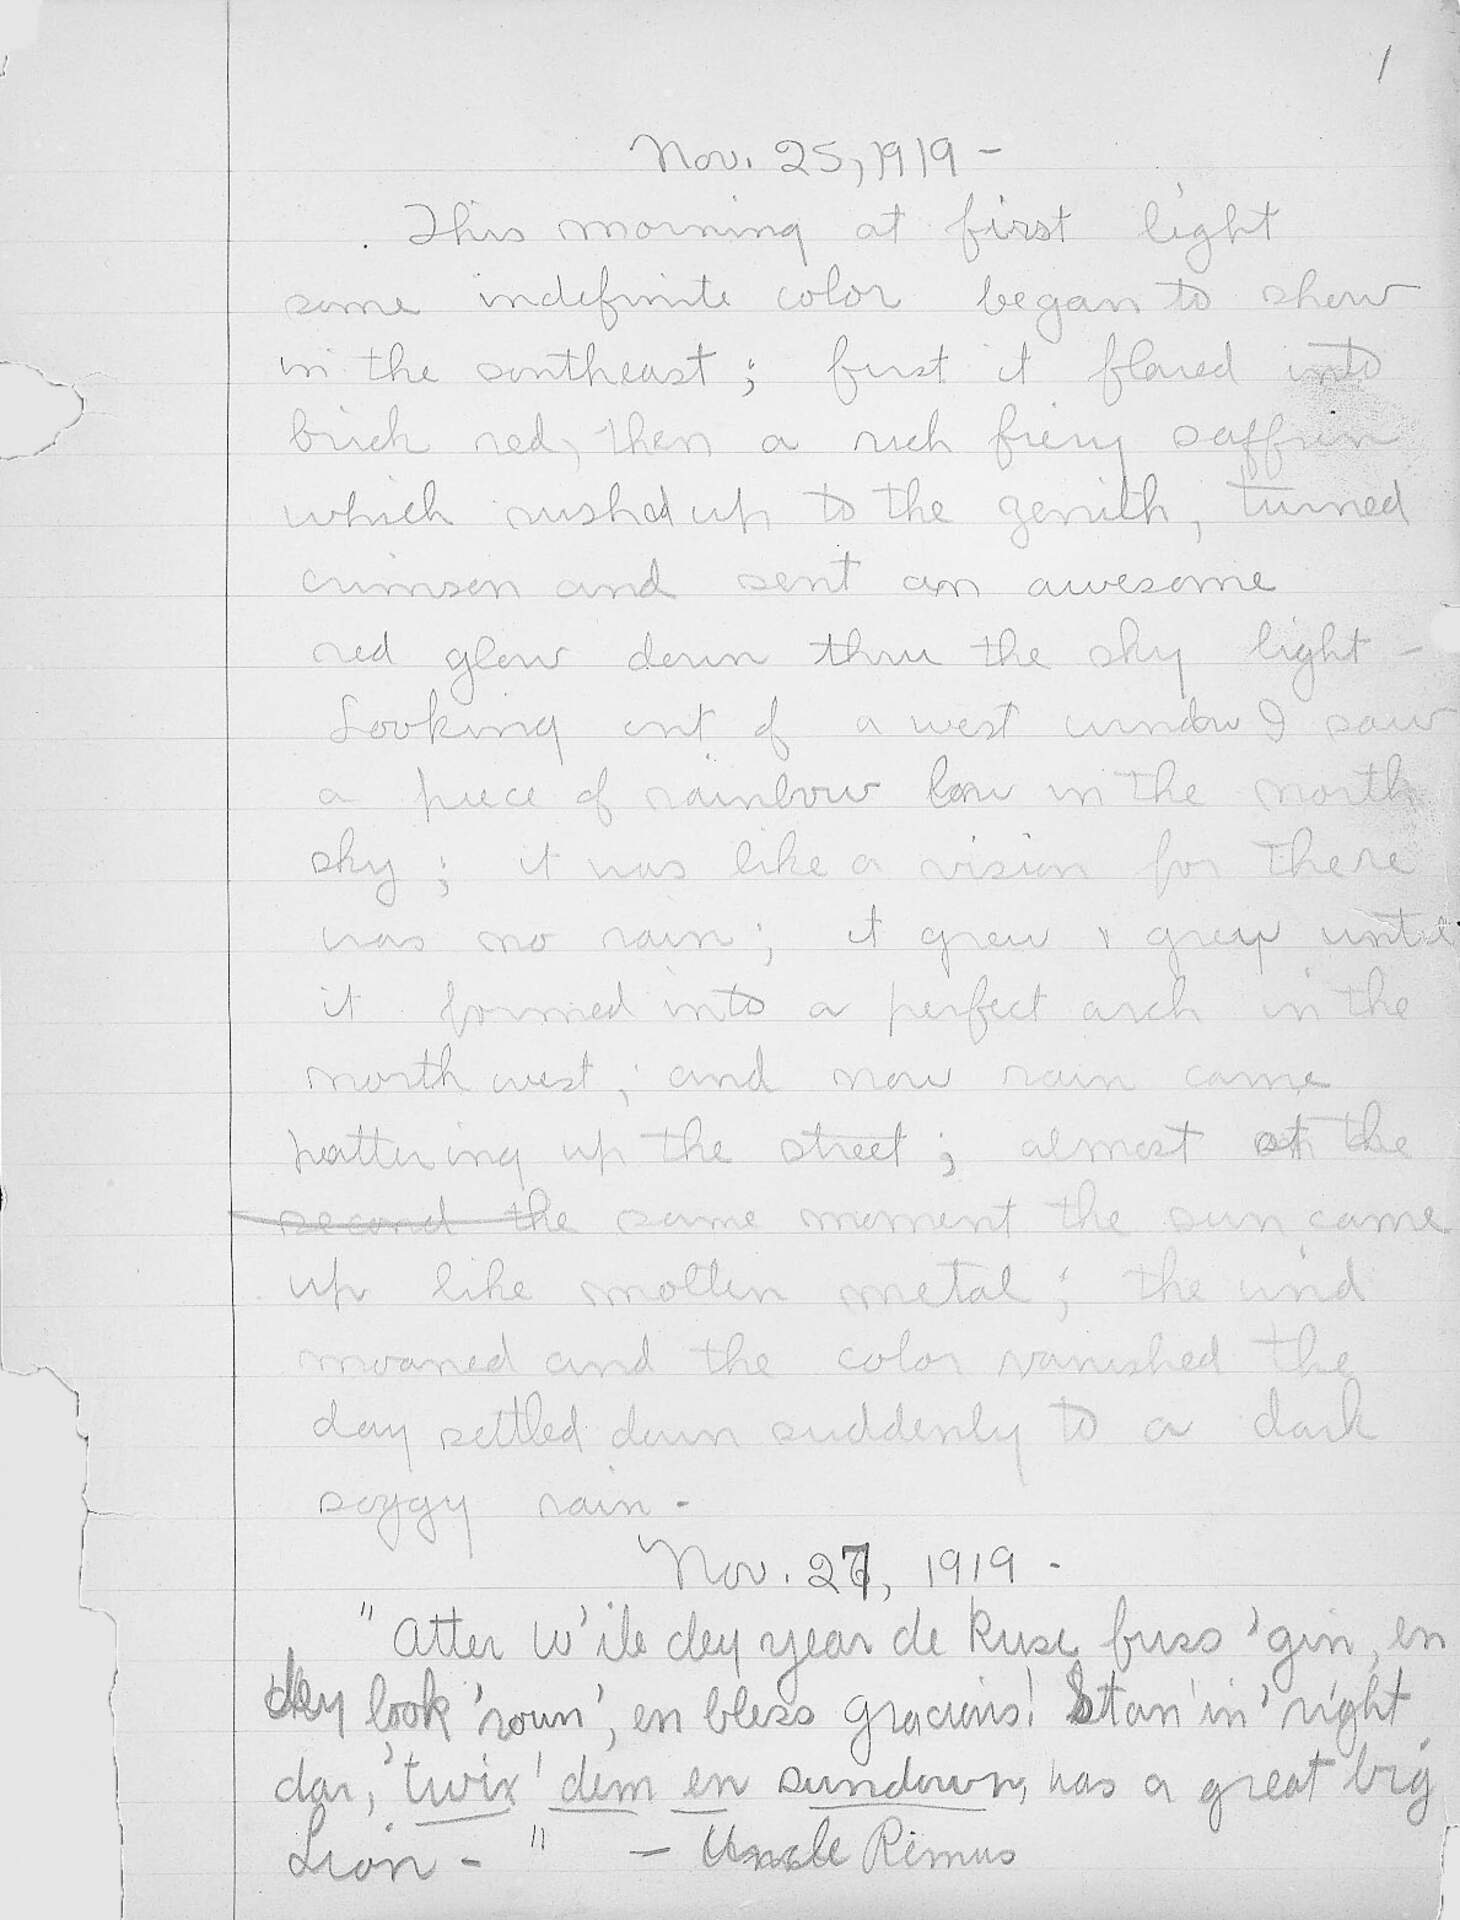 1
Nov. 25, 1919 -
This morning at first light
some indefinite color began to show
in the southeast; first it flared into
brick red, then a rich fiery saffron
which rushed up to the zenith, turned
crimson and sent an awesome
red glow down thru the sky light -
Looking out of a west window I saw
a piece of rainbow low in the north
sky; it was like a vision for there
was no rain; it grew & grew until
it formed into a perfect arch in the
north west; and now rain came
pattering up the street; almost at the
second the same moment the sun came
up like molten metal; the wind
moaned and the color vanished the
day settled down suddenly to a dark
soggy rain -
Nov. 27, 1919 -
"Atter w'ile dey year de kuse fuss 'gin, en
dey look 'roun', en bless gracious! Stan'in' right
dar, 'twix' dem en sundown, was a great big
Lion - " - Uncle Remus